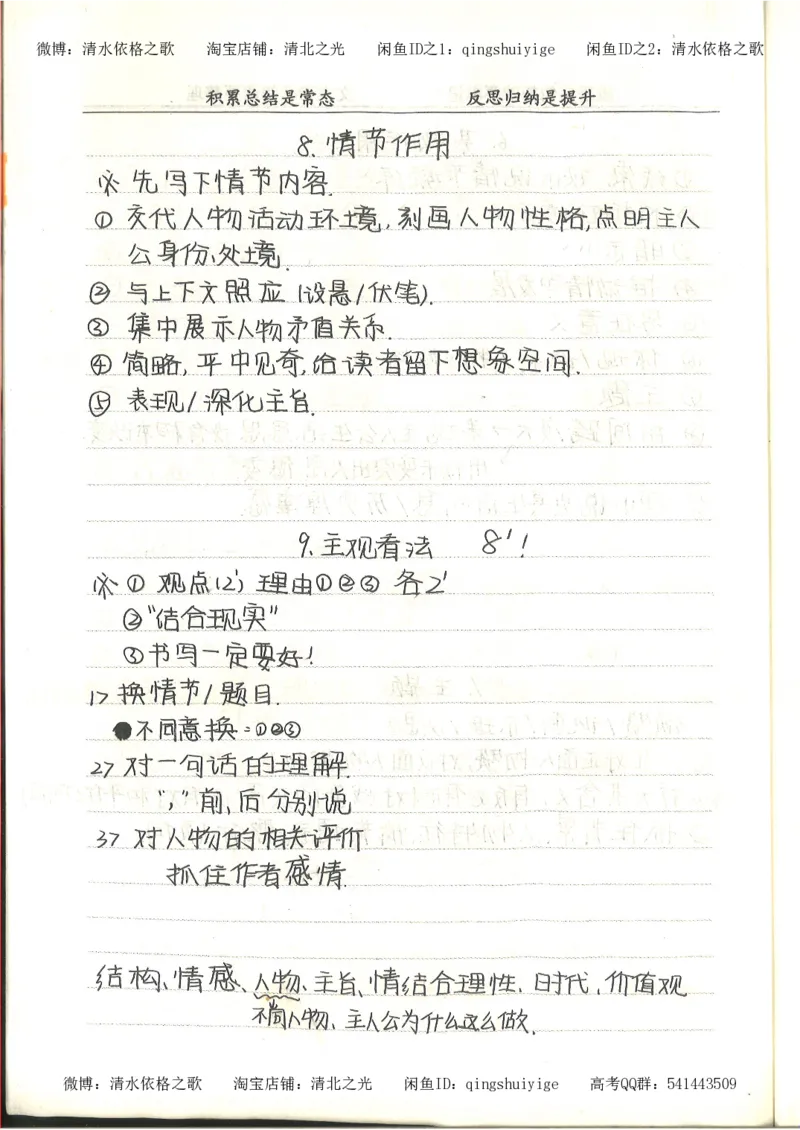 微博：清水依格之歌 淘宝店铺：清北之光 闲鱼ID之1：qingshuiyige 闲鱼ID之2：清水依格之歌
积累总结是常态 反思归纳是提升
8. 情节作用
※ 先写下情节内容.
① 交代人物活动环境,刻画人物性格,点明主人
公身份、处境.
② 与上下文照应(设悬/伏笔).
③ 集中展示人物矛盾关系.
④ 简略,平中见奇,给读者留下想象空间.
⑤ 表现/深化主旨.
9. 主观看法 8'!
※ ① 观点(2') 理由①②③ 各2'
②"结合现实"
③书写一定要好!
1> 换情节/题目.
●不同意换=①②③
2> 对一句话的理解.
","前,后分别说
3> 对人物的相关评价
抓住作者感情.
结构、情感、人物、主旨、情结合理性、时代、价值观
不同人物、主人公为什么这么做.
微博：清水依格之歌 淘宝店铺：清北之光 闲鱼ID：qingshuiyige 高考QQ群：541443509